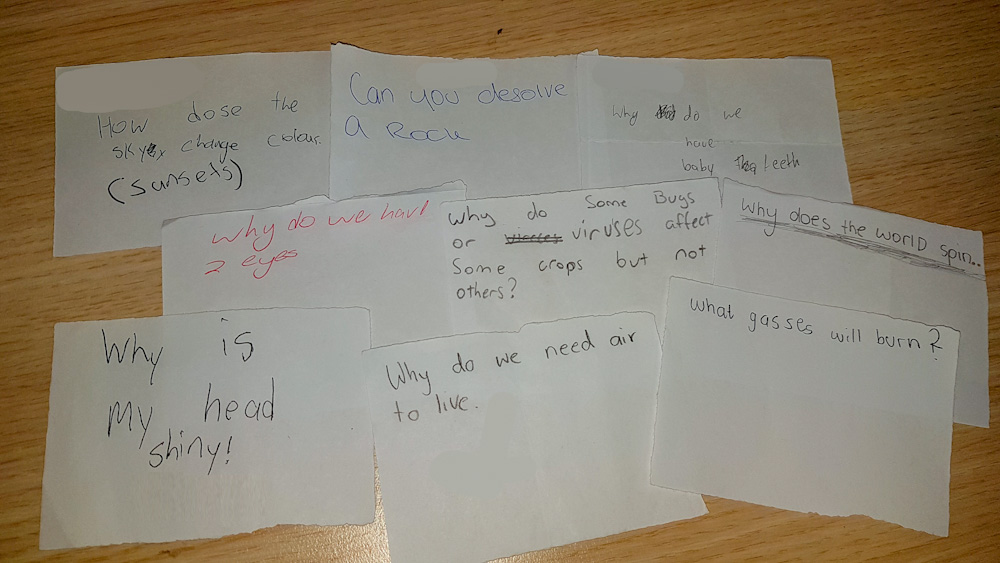 How dose the
sky change colour.
(sunsets)
Can you desolve
a Rock
Why do we
have
baby teeth
why do we have
2 eyes
why do some Bugs
or viruses affect
Some crops but not
others?
Why does the world spin..
Why is
My head
shiny!
Why do we need air
to live.
what gasses will burn?